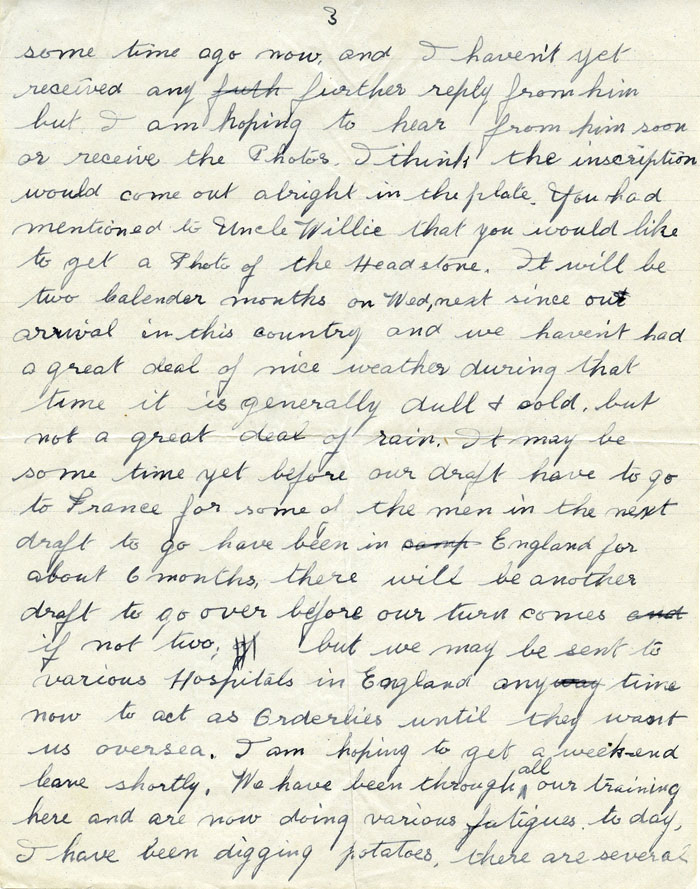 3
some time ago now, and I haven't yet
received any futh further reply from him
but I am hoping to hear from him soon
or receive the Photos. I think the inscription
would come out alright in the plate. You had
mentioned to Uncle Willie that you would like
to get a Photo of the Headstone. It will be
two calender months on Wed, next since out
arrival in this country and we haven't had
a great deal of nice weather during that
time it is generally dull & cold, but
not a great deal of rain. It may be
some time yet before our draft have to go
to France for some of the men in the next
draft to go have been in camp England for
about 6 months, there will be another
draft to go over before our turn comes and
if not two, but we may be sent to
various Hospitals in England anyway time
now to act as Orderlies until they want
us oversea. I am hoping to get a week-end
leave shortly. We have been through all our training
here and are now doing various fatigues. to day,
I have been digging potatoes, there are several